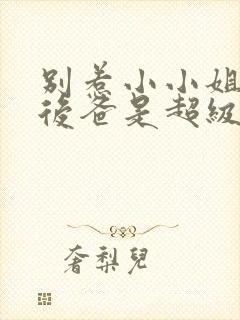 別惹小小姐
後爸是超級
奢梨兒